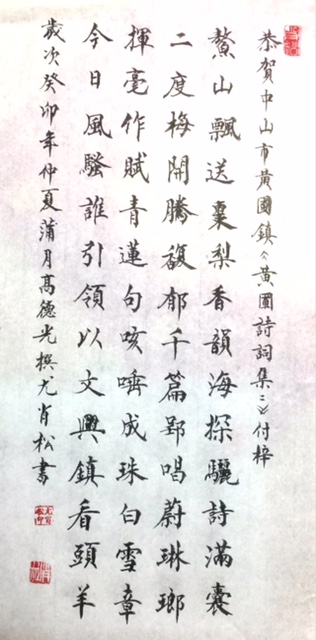 恭賀中山市黃圃鎮《黃圃詩詞集二》付梓
鰲山飄送棗梨香韻海探驪詩滿囊
二度梅開騰馥郁千篇郢唱蔚琳瑯
揮毫作賦青蓮句咳唾成珠白雪章
今日風騷誰引領以文興鎮看頭羊
歲次癸卯年仲夏蒲月高德光撰尤肖松書